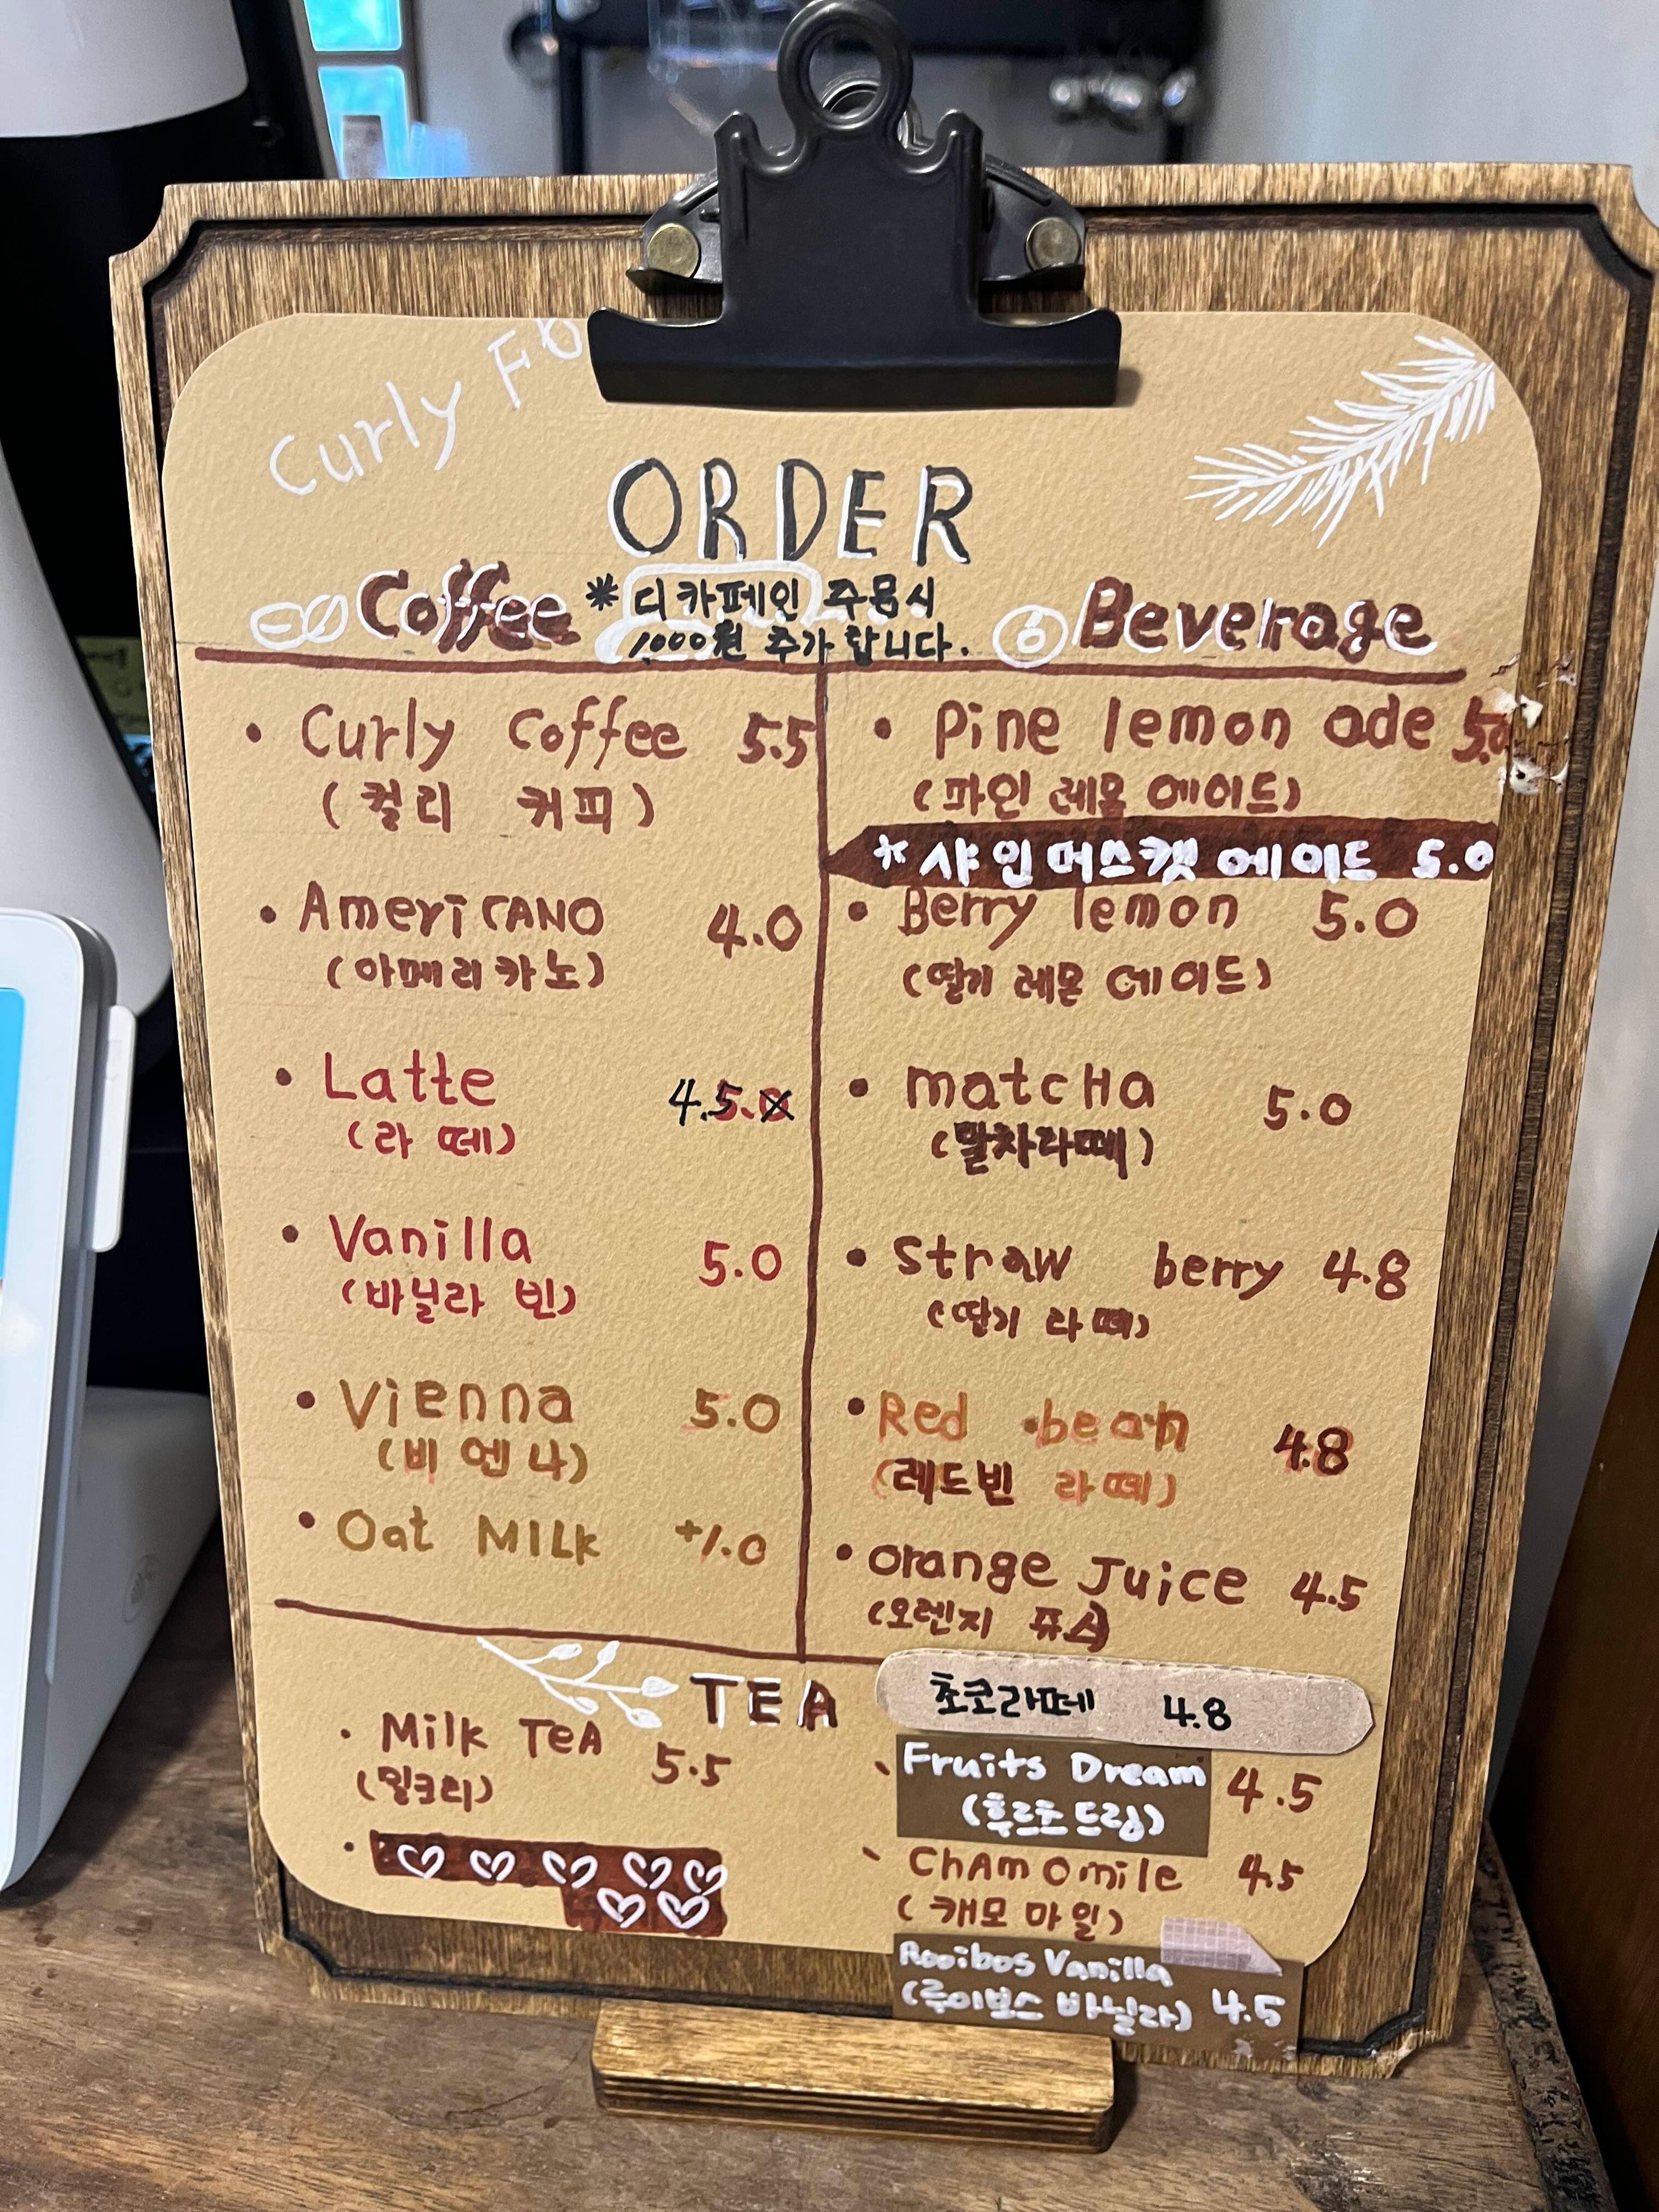 Curly
ORDER
Coffee
*디카페인 주문시
1,000원 추가 합니다.
• Curly Coffee 5.5
(컬리 커피)
• AmeriCANO 4.0
(아메리카노)
• Latte 4.5
(라떼)
• Vanilla 5.0
(바닐라 빈)
• Vienna 5.0
(비엔나)
• Oat MILK +1.0
Beverage
• Pine lemon ade 5.0
(파인 레몬 에이드)
* 샤인머스캣 에이드 5.0
• Berry lemon 5.0
(딸기 레몬 에이드)
• matcHa 5.0
(말차라떼)
• Straw berry 4.8
(딸기 라떼)
• Red bean 4.8
(레드빈 라떼)
• Orange Juice 4.5
(오렌지 쥬스)
초코라떼 4.8
TEA
• Milk TeA 5.5
(밀크티)
Fruits Dream 4.5
(후르츠드림)
ChAmomile 4.5
(캐모마일)
Rooibos Vanilla
(루이보스 바닐라) 4.5